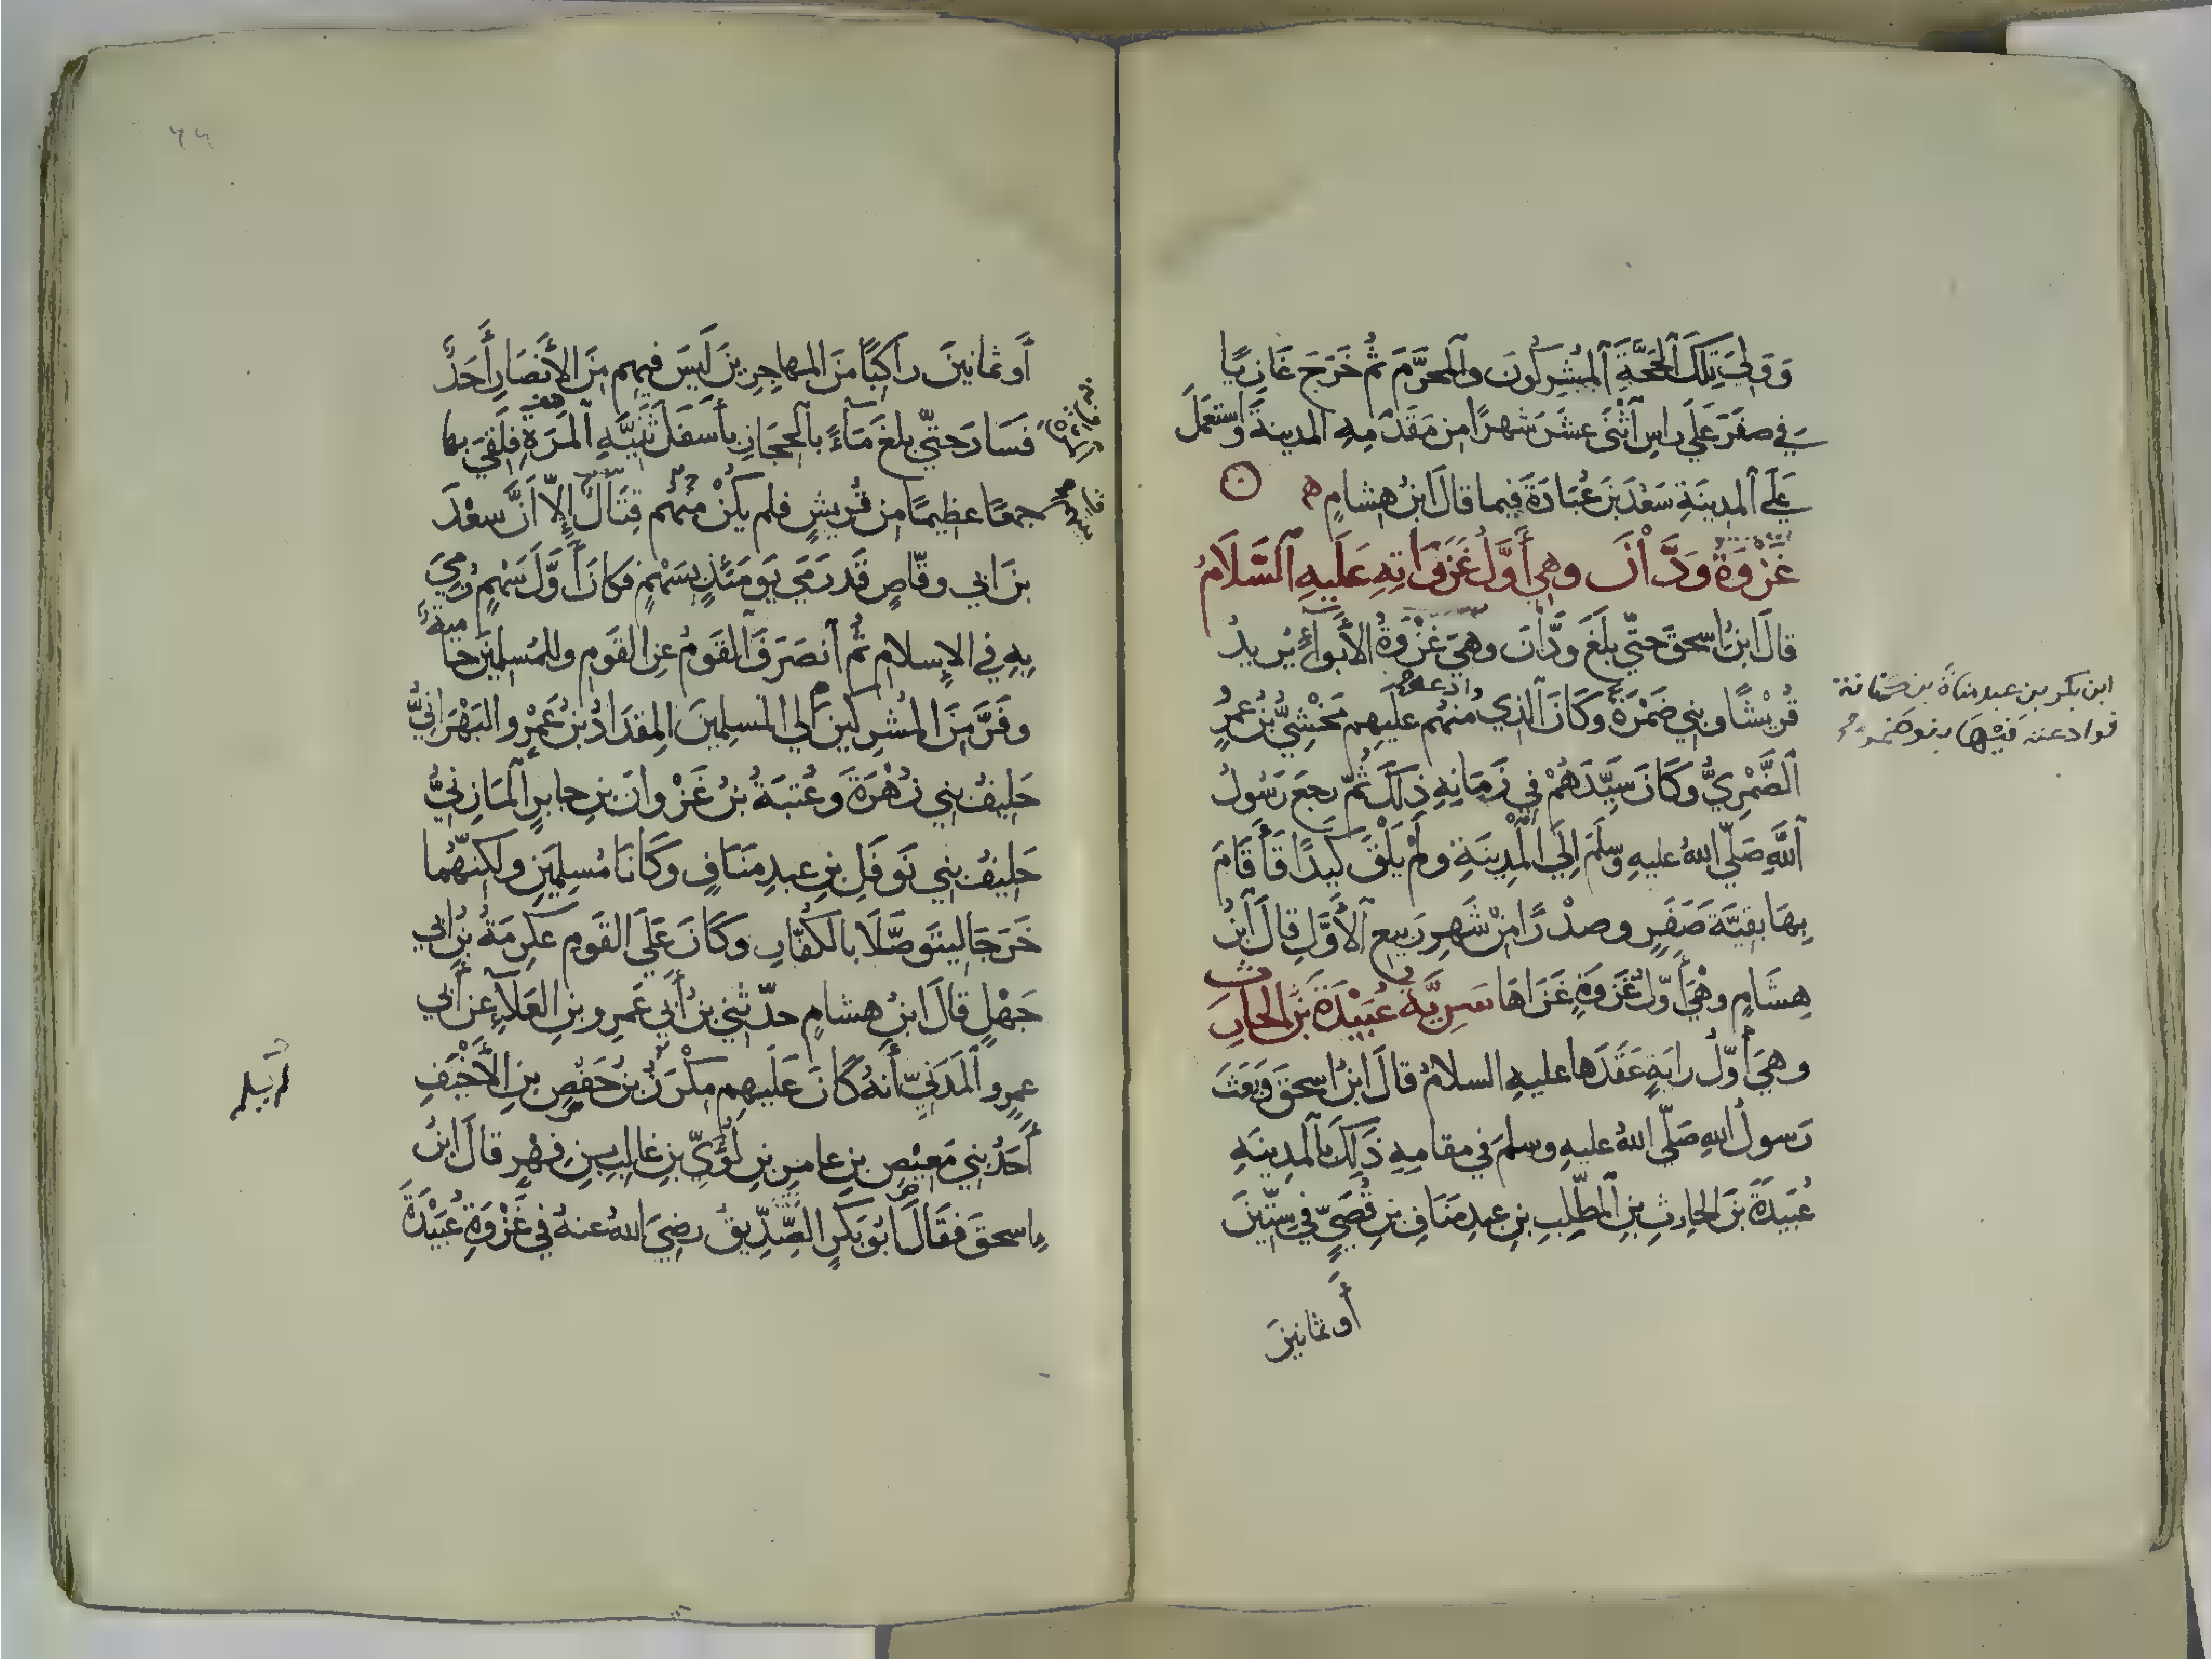 وَوَلِيَ تِلْكَ الحَجَّةَ المُشْرِكُونَ والمحرَّمَ ثُمَّ خَرَجَ غَازِيًا
في صفَرَ عَلَى راسِ اثْنَى عشَرَ شهرًا من مَقْدَمِهِ المدينةَ واستعمَلَ
عَلَى المدِينَةِ سَعْدَ بنَ عُبَادَةَ فيما قالَ ابنُ هشامٍ
غَزْوَةُ وَدَّانَ وهي أَوَّلُ غَزَوَاتِهِ عَلَيهِ السَّلَامُ
قالَ ابنُ اسحقَ حتّي بلَغَ وَدَّانَ وهيَ غَزْوَةُ الأَبْوَاءِ يُريدُ
قُرَيْشًا وبني ضَمْرَةَ وَكَانَ الذي وادعه منهُم عليهِم مَخْشِيُّ بنُ عمرٍو
الضَّمْرِيُّ وكَانَ سَيِّدَهُمْ فِي زَمَانِهِ ذَلِكَ ثُمّ رجَعَ رَسُولُ
اللَّهِ صَلّي اللهُ عليهِ وسلَّمَ إِلَى الْمَدِينَةِ ولَمْ يَلْقَ كَيدًا فَأَقَامَ
بِهَا بقيَّةَ صَفَرٍ وصدْرًا من شَهرِ رَبيعِ الأَوَّلِ قالَ ابنُ
هِشَامٍ وهْيَ أَوّلُ غَزوَةٍ غَزَاهَا سَرِيَّةُ عُبَيْدَةَ بْنِ الحَارِثِ
وهيَ أَوّلُ رايَةٍ عَقَدَها عليهِ السلامُ قالَ ابنُ اسحقَ وَبَعَثَ
رَسولُ اللهِ صَلّي اللهُ عليهِ وسلمَ في مقامِهِ ذَلِكَ بالمدِينَةِ
عُبَيدَةَ بنَ الحارِثِ بنِ المطَّلِبِ بنِ عبدِ مَنَافِ بنِ قُصَيٍّ في سِتّينَ
أَو ثمانينَ
ابن بكر بن عبد مناة بن كنانة
فوادعته فيها بنو ضمرة
أَو ثمانينَ راكبًا منَ المهاجِرِينَ لَيسَ فيهِم مِنَ الأَنصَارِ أَحَدٌ
فَسَارَ حتّي بلغَ مَاءً بالحجَازِ بأَسفَلَ ثَنِيَّةِ المَرَةِ فلَقيَ بها
جمعًا عظيمًا من قُريشٍ فلم يَكُنْ منهُم قِتَالٌ إِلّا أَنَّ سعْدَ
بنَ ابي وقّاصٍ قَد رَمَي يَومَئذٍ بسَهْمٍ فكانَ أَوّلَ سَهْمٍ رُمِيَ
بِهِ في الإِسلامِ ثُمَّ انصَرَفَ القَومُ عنِ القَومِ وللمُسلِمِينَ حامية
وفَرَّ مِنَ المُشرِكينَ الي المسلِمِينَ المِقدَادُ بنُ عَمْرٍو البَهْرَانِيُّ
حَلِيفُ بني زُهْرَةَ وَعُتبَةُ بنُ غَزْوانَ بنِ جابرٍ المَازِنيُّ
حَليفُ بني نَوفَلِ بنِ عبدِ مَنَافٍ وَكَانَا مُسلِمَينِ ولكنّهُما
خَرَجَا ليتَوصَّلَا بالكُفّارِ وكَانَ عَلَى القَومِ عِكرِمَةُ بنُ ابي
جَهْلٍ قالَ ابنُ هِشامٍ حدّثني بنُ أَبي عَمرِو بنِ العَلَاءِ عن أَبي
عمرٍو المَدَنيّ أَنهُ كَانَ عَلَيهِم مِكْرَزُ بنُ حَفْصِ بنِ الأَخْيَفِ
أَحَدُ بني مَعِيْصِ بنِ عامرِ بنِ لُؤَيِّ بنِ غالبِ بنِ فِهْرٍ قالَ ابنُ
اسحقَ فقَالَ أَبُو بَكرٍ الصِّدِّيقُ رضِيَ اللهُ عنهُ في غَزْوَةِ عُبَيْدَةَ